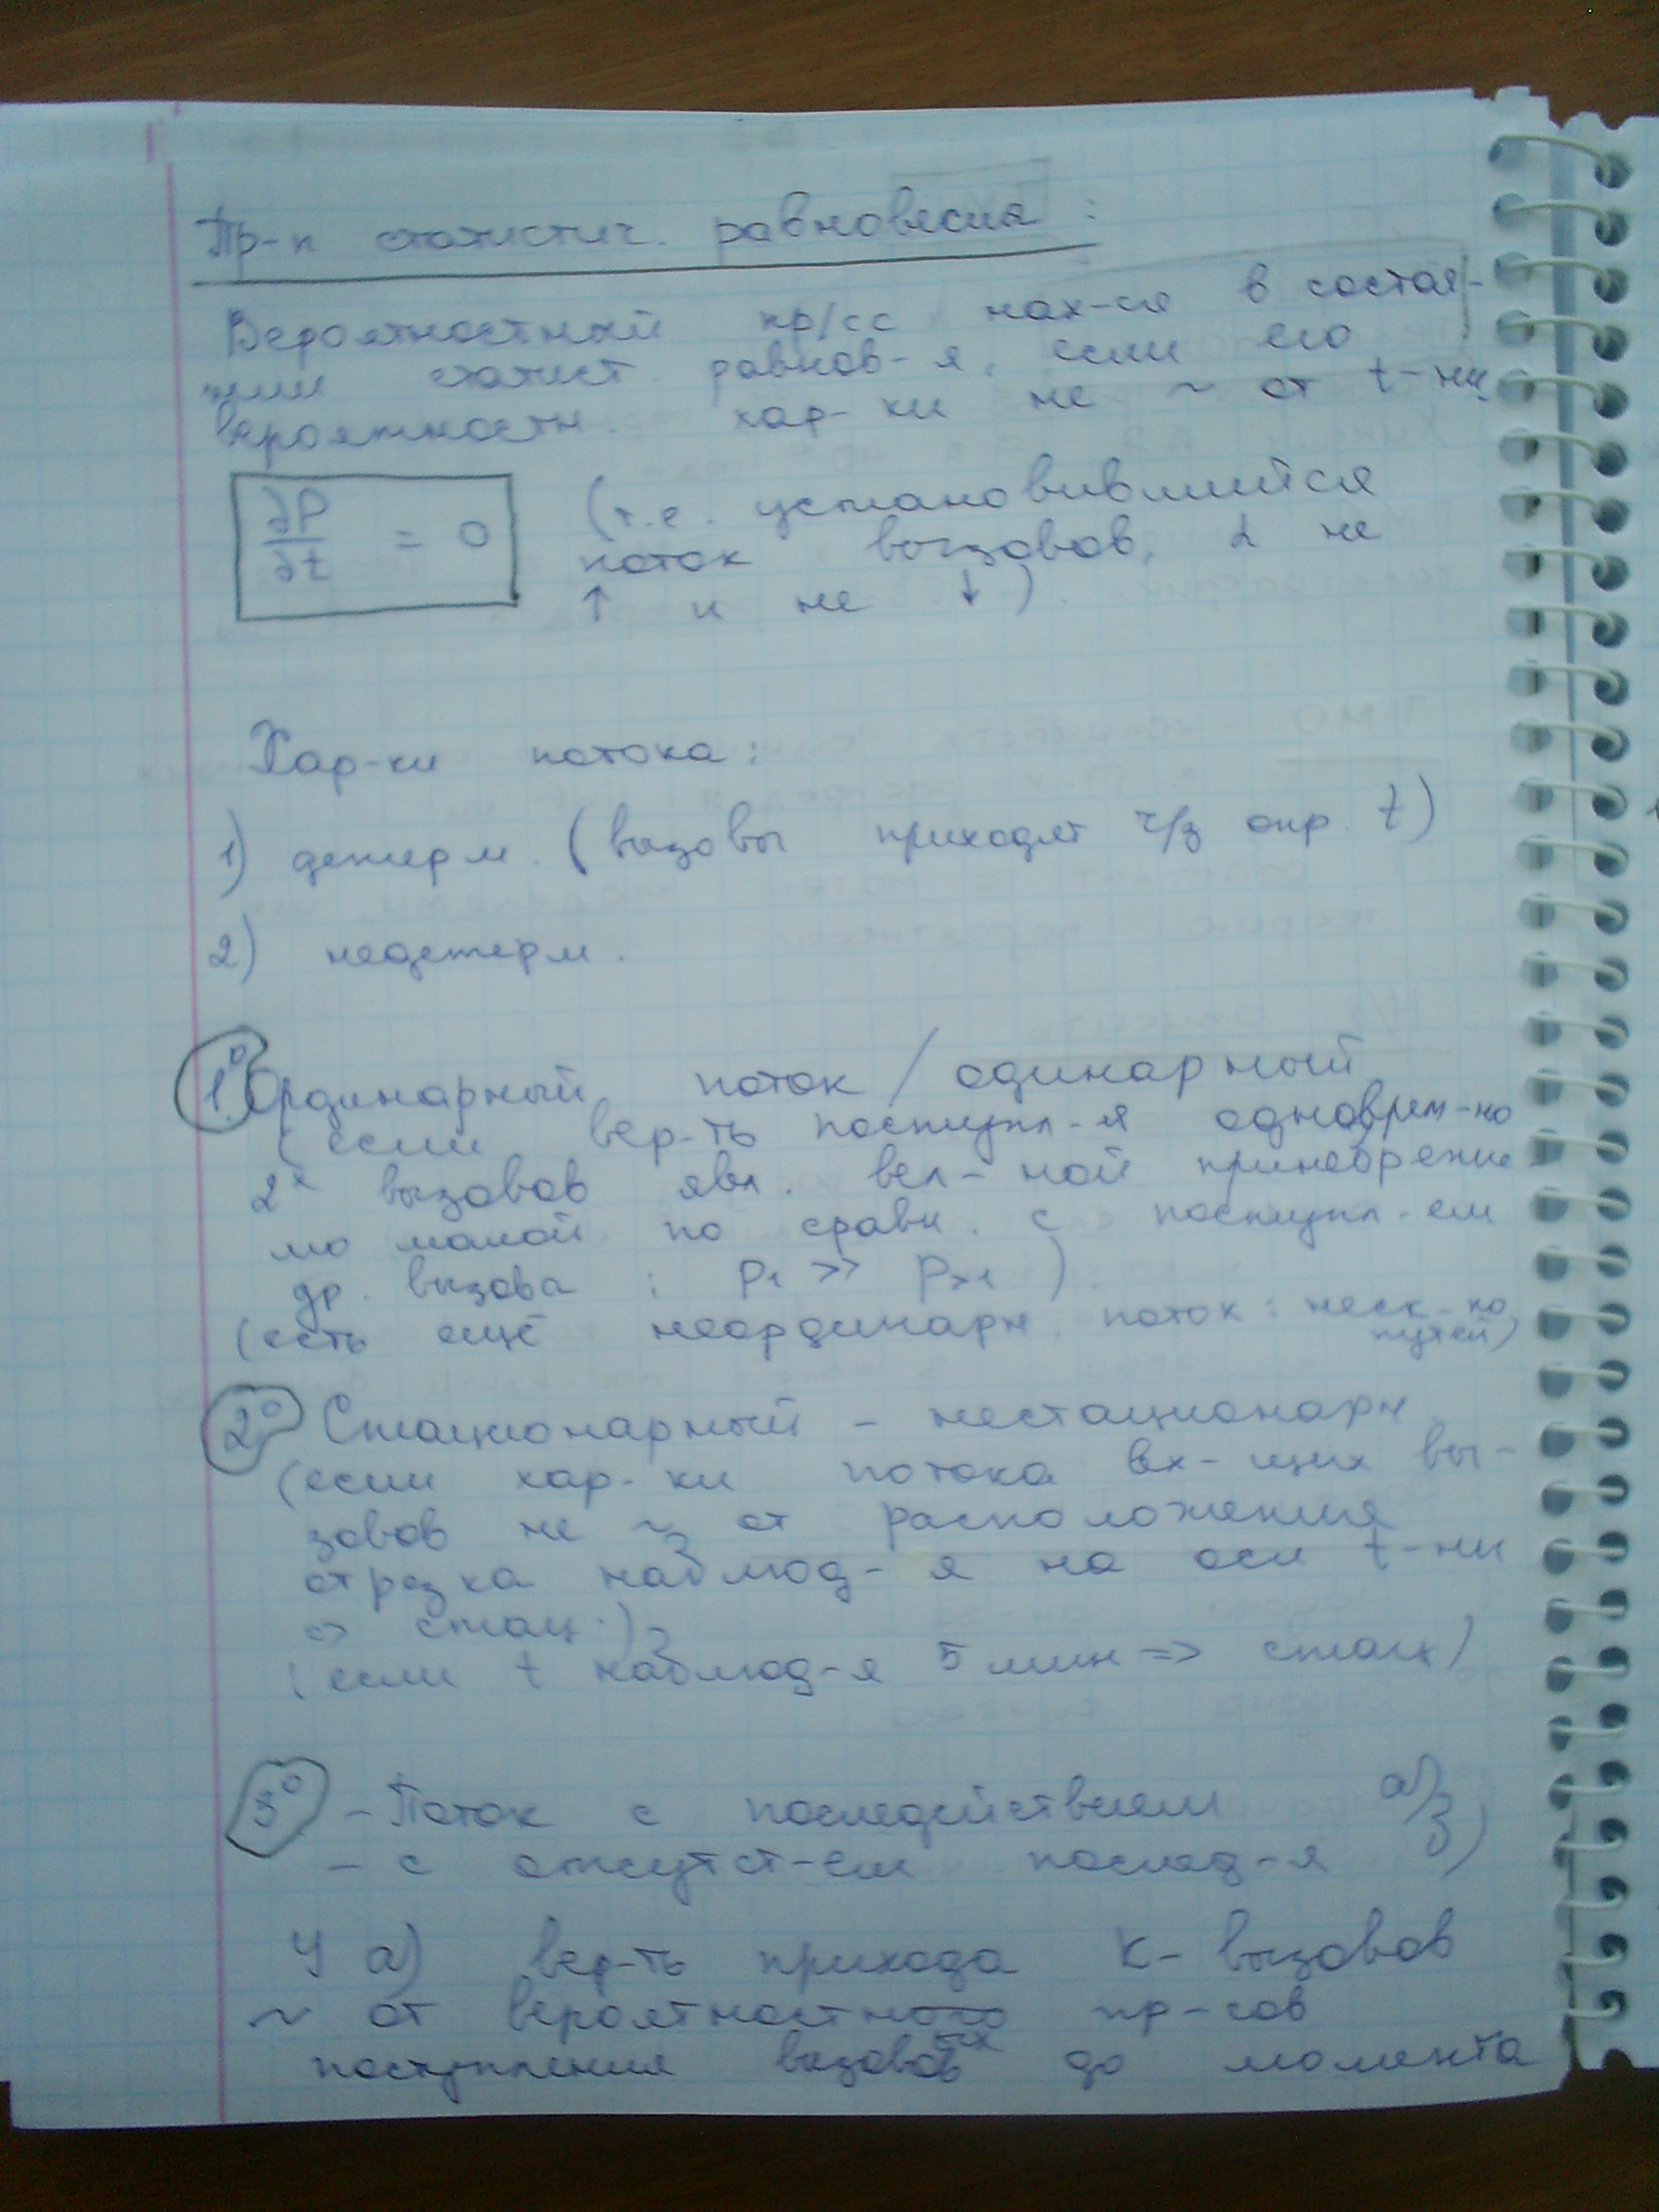 Пр-п статистич. равновесия :
Вероятностный пр/сс нах-ся в состоя-
нии статист. равнов-я, если его
вероятностн. хар-ки не ~ от t-ни
∂P/∂t = 0
(т.е. установившийся
поток вызовов, L не
↑ и не ↓)
Хар-ки потока:
1) детерм. (вызовы приходят ч/з опр. t)
2) недетерм.
1° Ординарный поток / одинарный
(если вер-ть поступл-я одноврем-но
2х вызовов явл. вел-ной принебрежи
мо малой по сравн. с поступл-ем
др. вызова : P1 >> P>1 )
(есть ещё неординарн. поток: неск-ко
путей)
2° Стационарный - нестационарн.
(если хар-ки потока вх-щих вы-
зовов не ~ от расположения
отрезка наблюд-я на оси t-ни
=> стац.)
(если t наблюд-я 5 мин => стац)
3° - Поток с последействием а)
- с отсутст-ем послед-я
У а) вер-ть прихода K- вызовов
~ от вероятностного пр-сов
поступления вызовов до момента